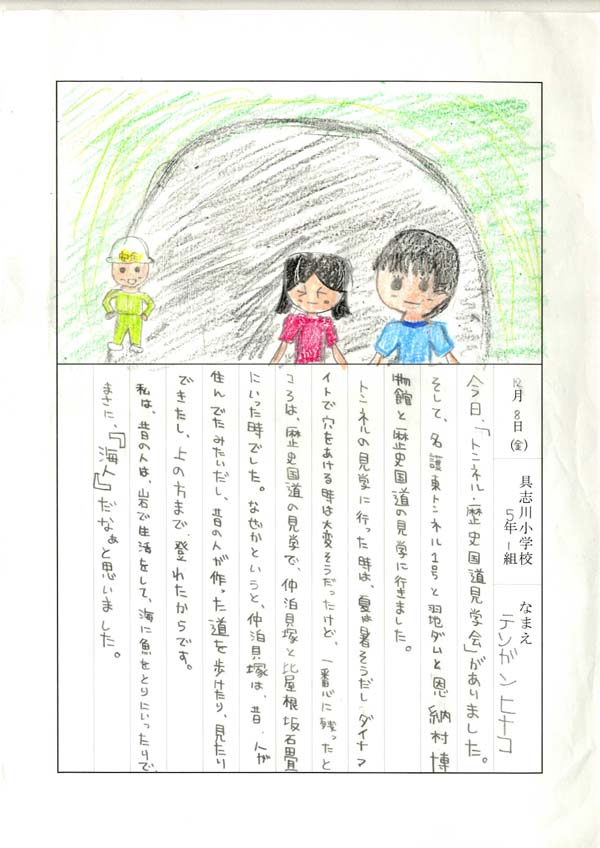 12月8日(金) 具志川小学校 5年1組 なまえ テンガンヒナコ
今日、「トンネル・歴史国道見学会」がありました。
そして、名護東トンネル1号と羽地ダムと恩納村博
物館と歴史国道の見学に行きました。
トンネルの見学に行った時は、夏は暑そうだし、ダイナマ
イトで穴をあける時は大変そうだったけど、一番心に残ったと
ころは、歴史国道の見学で、仲泊貝塚と比屋根坂石畳
にいった時でした。なぜかというと、仲泊貝塚は、昔、人が
住んでたみたいだし、昔の人が作った道を歩けたり、見たり
できたし、上の方まで登れたからです。
私は、昔の人は、岩で生活をして、海に魚をとりにいったりで、
まさに、『海人』だなぁと思いました。